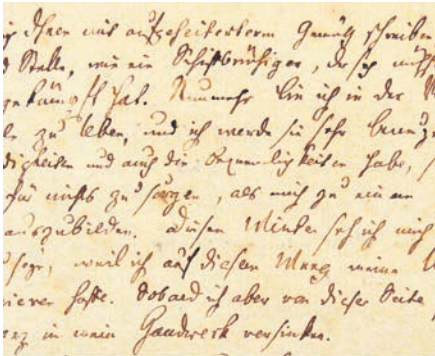 Ihnen mit aufgeheitertem Gemüth schreiben
Stelle, wie ein Schiffbrüchiger, der sich
gekämpft hat. Nunmehr bin ich in der
zu leben, und ich werde sie sehr
und auch die Bequemlichkeiten habe,
für nichts zu sorgen, als mich zu einem
auszubilden. Diesen Winter seh ich mich
weil ich auf diesem Weeg meine
hoffe. Sobald ich aber von dieser Seite
in mein Handwerk versinken.